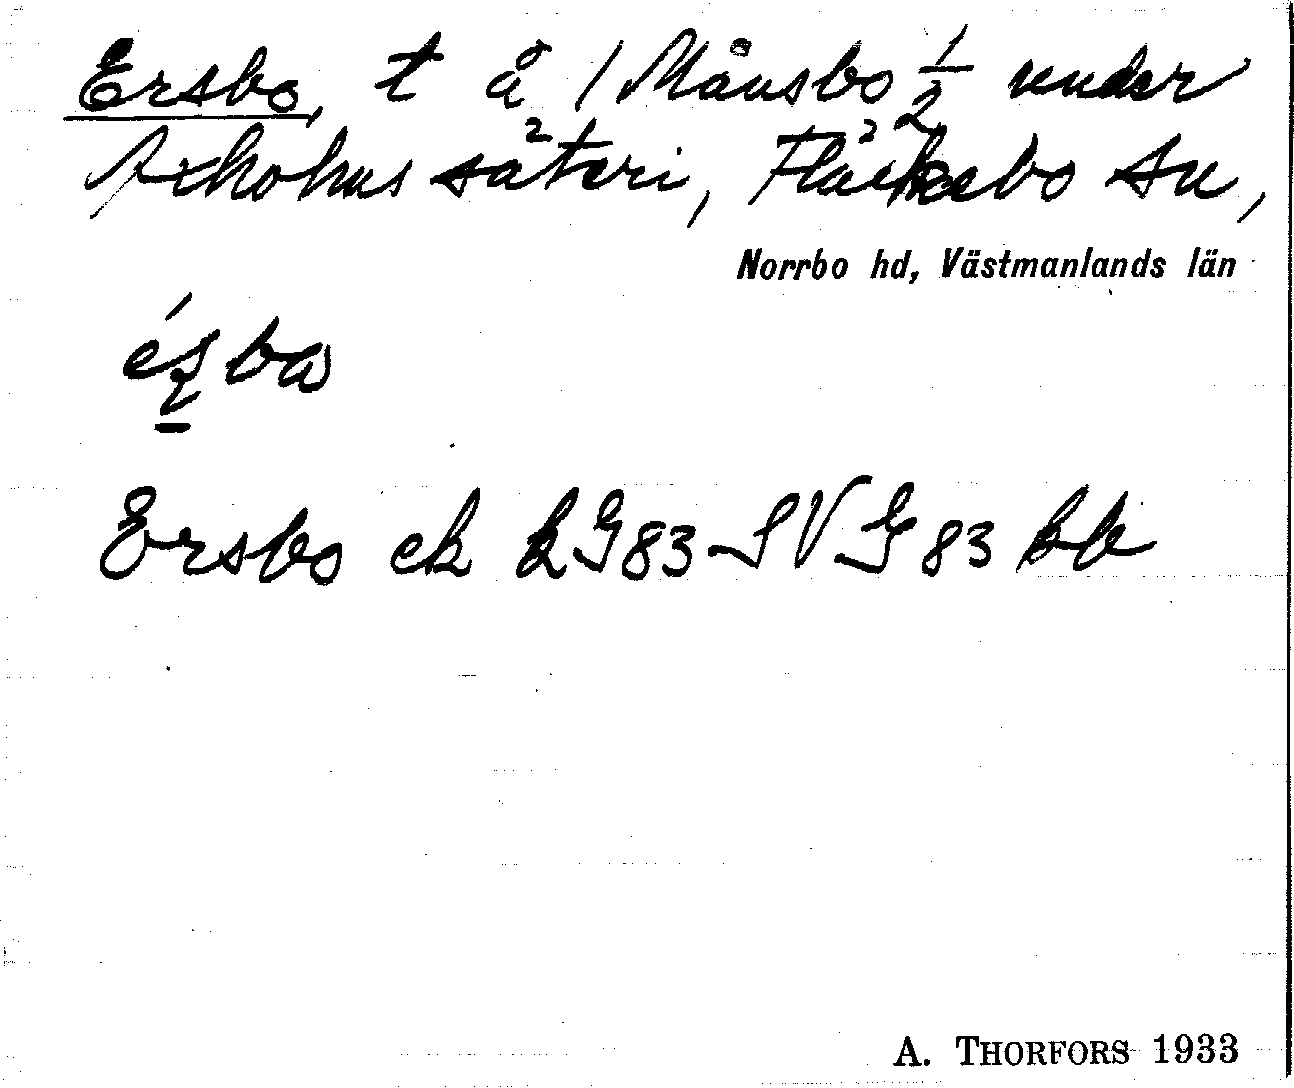 Ersbo, t å 1 Månsbo 1/2 under
säteri, Fläckebo sn,
Norrbo hd, Västmanlands län
Ersbo ek kG83-SVG83 bb
A. THORFORS 1933